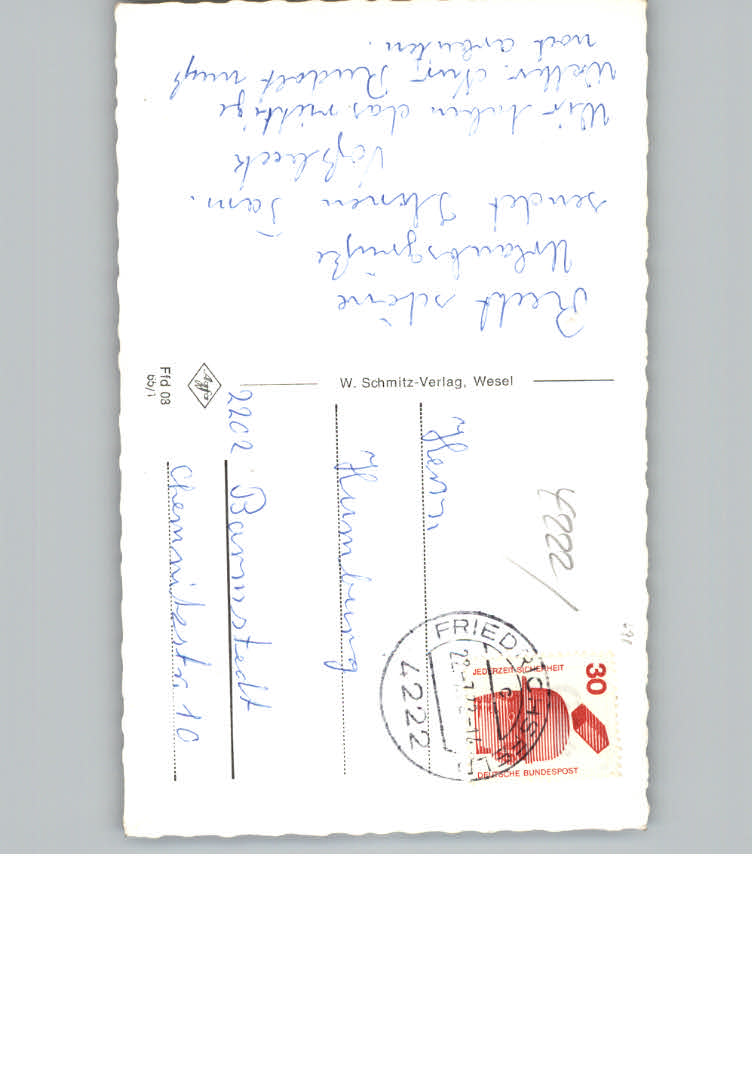 Recht schöne
Urlaubsgrüße
sendet Ihnen Fam.
Voßbeck
Wir haben das richtige
Wetter. Nur Rudolf muß
noch arbeiten.
W. Schmitz-Verlag, Wesel
Agfa
Ffd 03
65/1
4222
Herrn
Humburg
2202 Barmstedt
Chemnitzerstr. 10
FRIEDRICHSFELD
4222
30
JEDERZEIT SICHERHEIT
DEUTSCHE BUNDESPOST